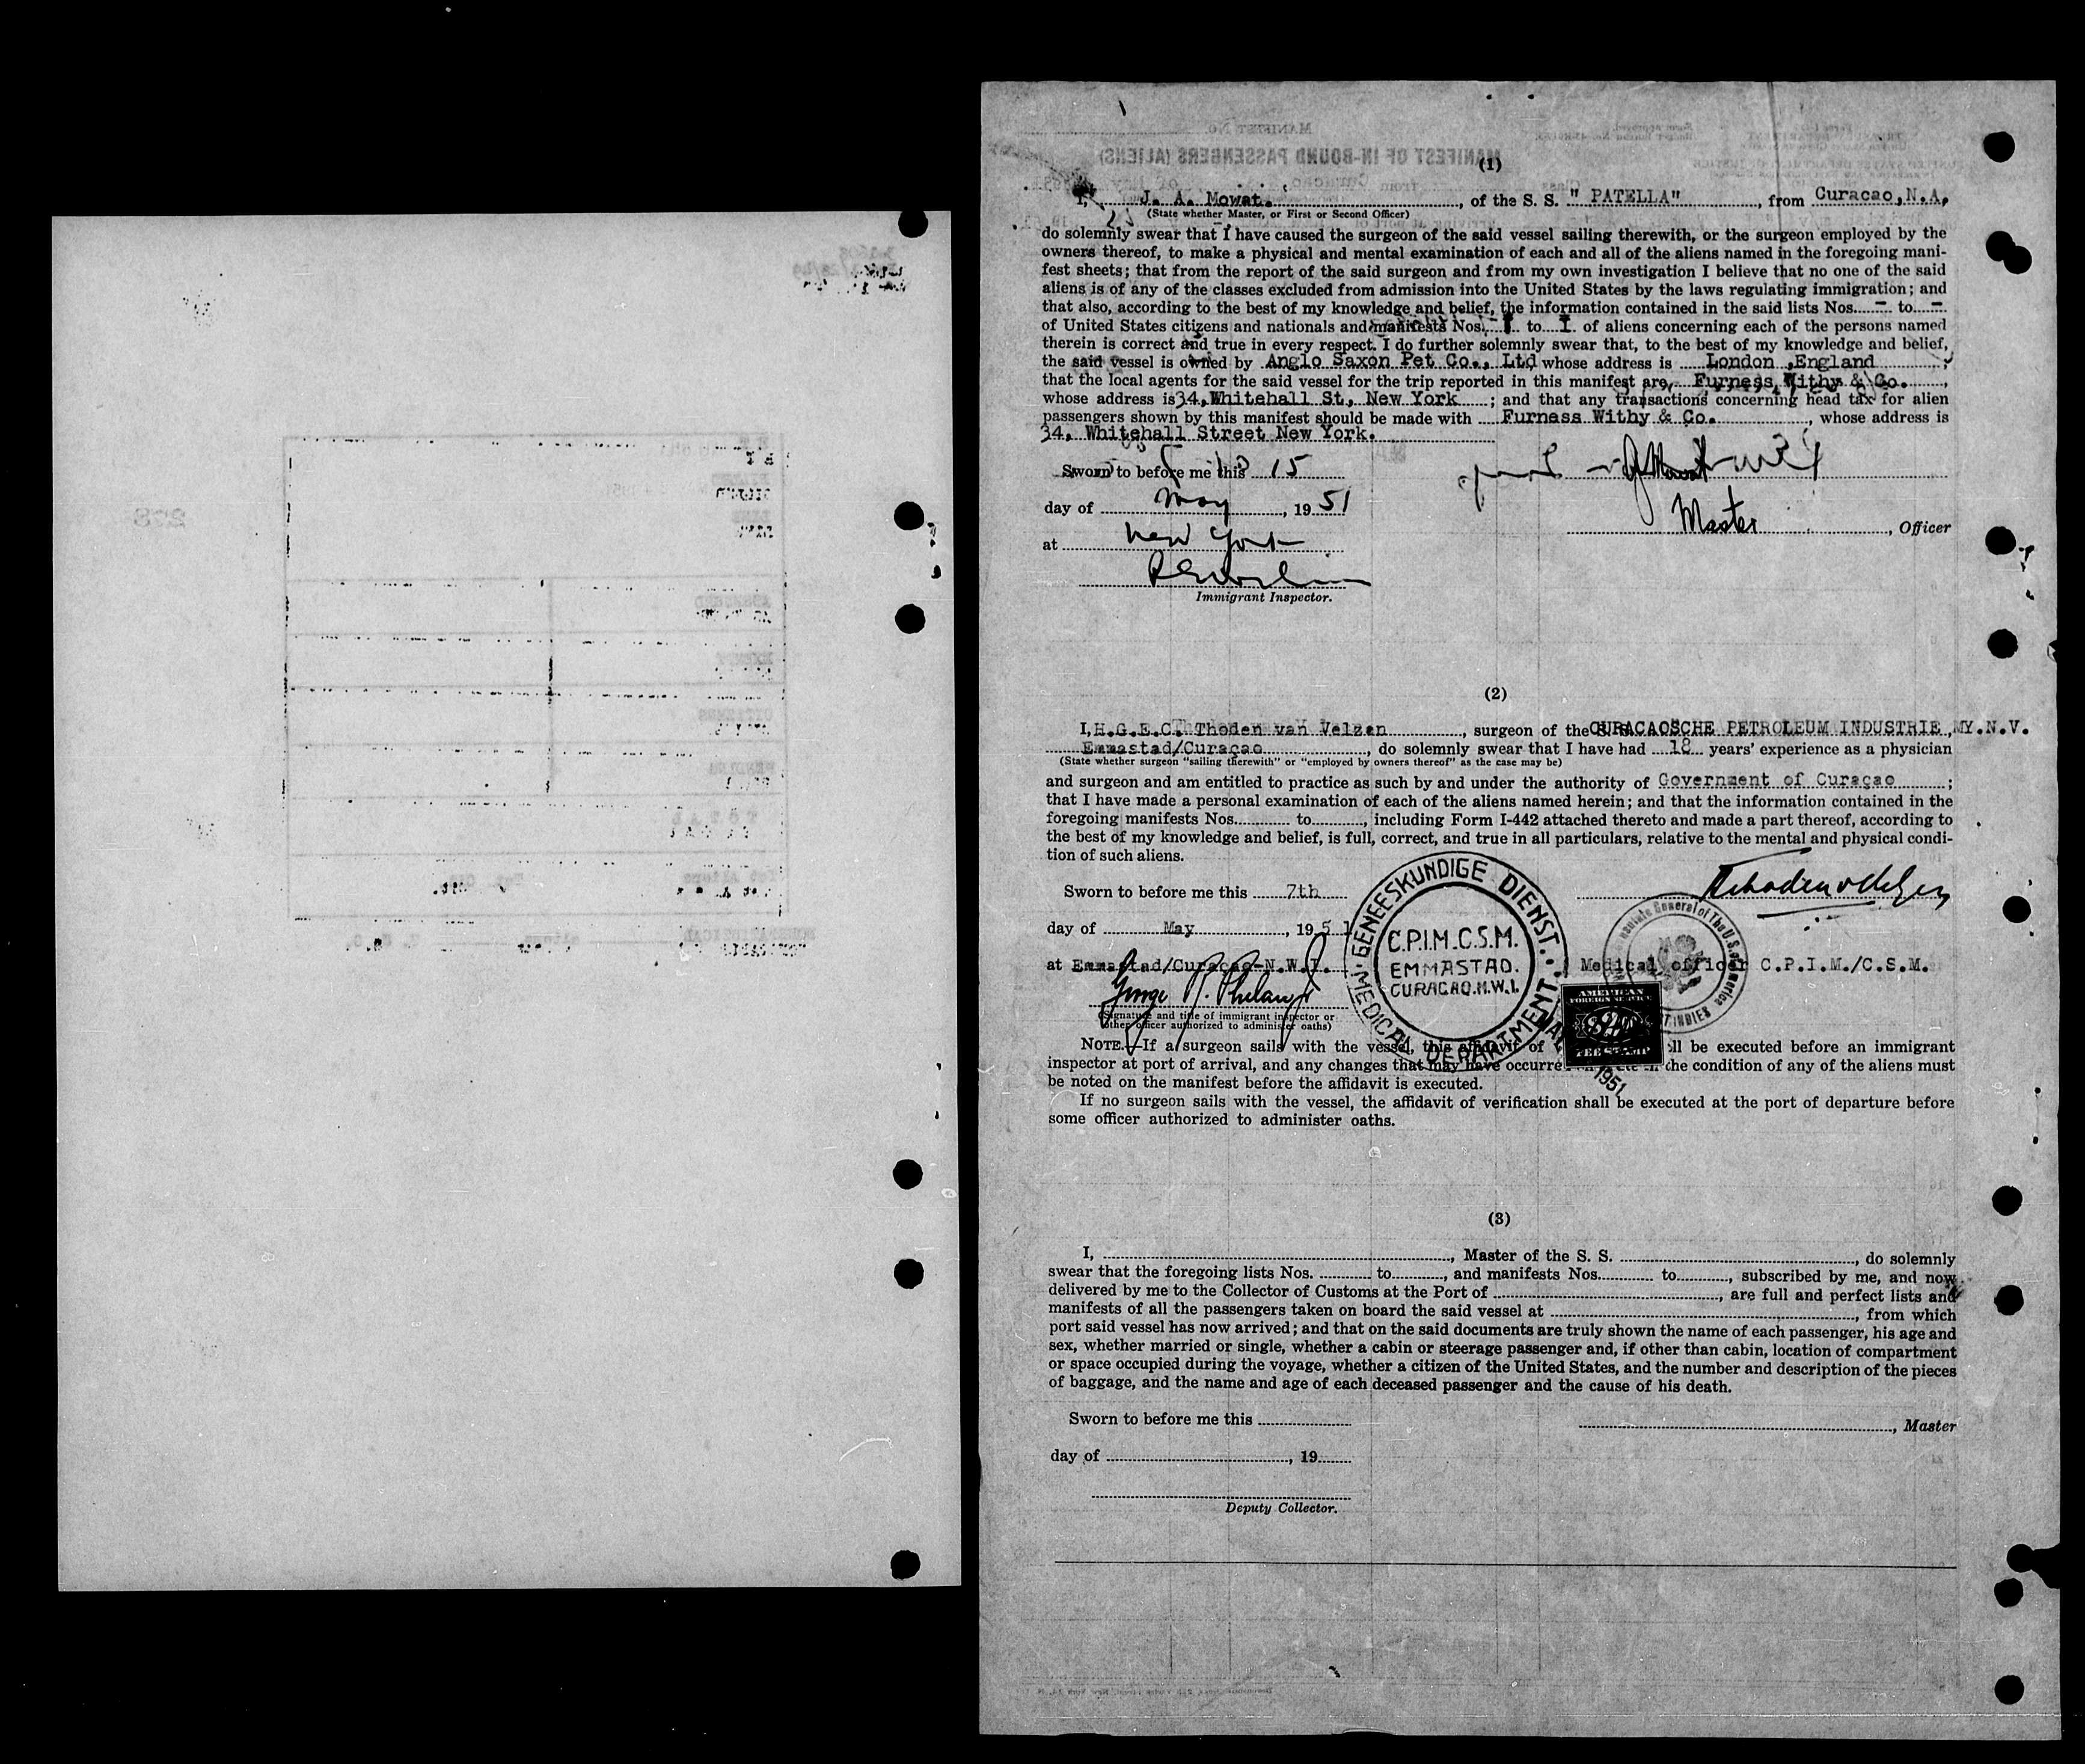 (1)
I, J. A. Mowat. , of the S. S. " PATELLA" , from Curacao,N.A,
(State whether Master, or First or Second Officer)
do solemnly swear that I have caused the surgeon of the said vessel sailing therewith, or the surgeon employed by the
owners thereof, to make a physical and mental examination of each and all of the aliens named in the foregoing mani-
fest sheets; that from the report of the said surgeon and from my own investigation I believe that no one of the said
aliens is of any of the classes excluded from admission into the United States by the laws regulating immigration; and
that also, according to the best of my knowledge and belief, the information contained in the said lists Nos. - to -
of United States citizens and nationals and manifests Nos. I to I of aliens concerning each of the persons named
therein is correct and true in every respect. I do further solemnly swear that, to the best of my knowledge and belief,
the said vessel is owned by Anglo Saxon Pet Co., Ltd whose address is London ,England ;
that the local agents for the said vessel for the trip reported in this manifest are Furness Withy & Co. ,
whose address is 34, Whitehall St, New York ; and that any transactions concerning head tax for alien
passengers shown by this manifest should be made with Furness Withy & Co. , whose address is
34, Whitehall Street New York.
Sworn to before me this 15
day of May , 19 51
Master , Officer
at New York
Immigrant Inspector.
(2)
I, H.G.E.C. Thoden van Velzen , surgeon of the CURACAOSCHE PETROLEUM INDUSTRIE MY.N.V.
Emmastad/Curaçao , do solemnly swear that I have had 18 years' experience as a physician
(State whether surgeon "sailing therewith" or "employed by owners thereof" as the case may be)
and surgeon and am entitled to practice as such by and under the authority of Government of Curaçao ;
that I have made a personal examination of each of the aliens named herein; and that the information contained in the
foregoing manifests Nos. to , including Form I-442 attached thereto and made a part thereof, according to
the best of my knowledge and belief, is full, correct, and true in all particulars, relative to the mental and physical condi-
tion of such aliens.
Sworn to before me this 7th
day of May , 19 51
at Emmastad/Curaçao-N.W.I.
Medical officer C.P.I.M./C.S.M.
George R. Phelan Jr
(Signature and title of immigrant inspector or
other officer authorized to administer oaths)
GENEESKUNDIGE DIENST
C.P.I.M.-C.S.M.
EMMASTAD.
CURAÇAO.N.W.I.
MEDICAL DEPARTMENT
General of The U.S. of America
AMERICAN
FOREIGN SERVICE
FEE STAMP
1951
NOTE.—If a surgeon sails with the vessel, this affidavit of be executed before an immigrant
inspector at port of arrival, and any changes that may have occurred the condition of any of the aliens must
be noted on the manifest before the affidavit is executed.
If no surgeon sails with the vessel, the affidavit of verification shall be executed at the port of departure before
some officer authorized to administer oaths.
(3)
I, , Master of the S. S. , do solemnly
swear that the foregoing lists Nos. to , and manifests Nos. to , subscribed by me, and now
delivered by me to the Collector of Customs at the Port of , are full and perfect lists and
manifests of all the passengers taken on board the said vessel at , from which
port said vessel has now arrived; and that on the said documents are truly shown the name of each passenger, his age and
sex, whether married or single, whether a cabin or steerage passenger and, if other than cabin, location of compartment
or space occupied during the voyage, whether a citizen of the United States, and the number and description of the pieces
of baggage, and the name and age of each deceased passenger and the cause of his death.
Sworn to before me this
, Master
day of , 19
Deputy Collector.